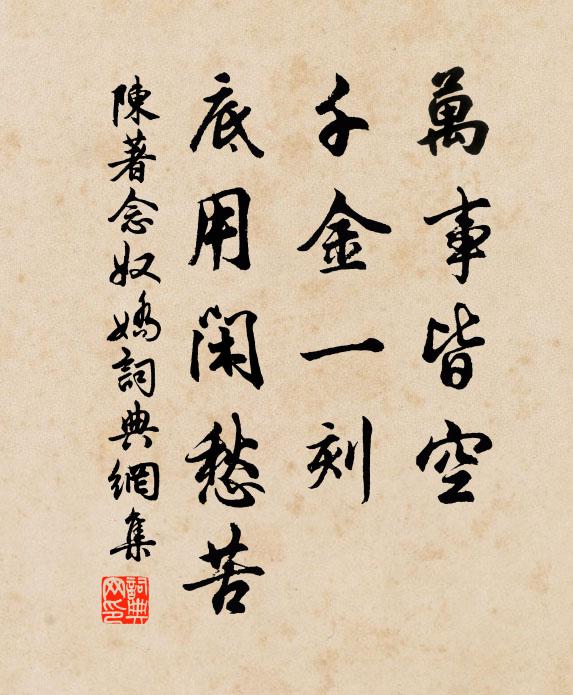 萬事皆空
千金一刻
底用閑愁苦
陳著念奴嬌詞典網集
詞典網印